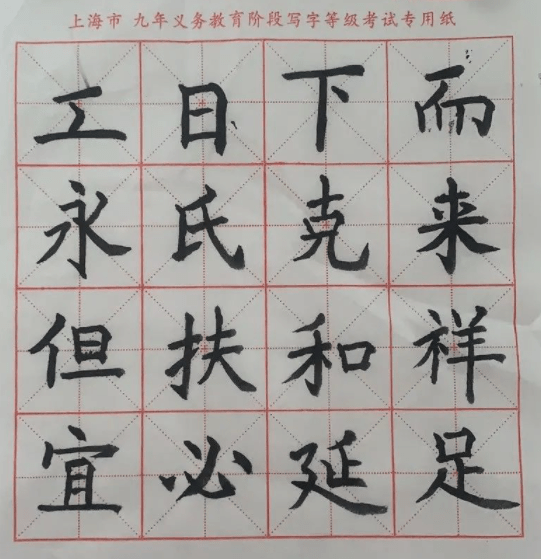 上海市 九年义务教育阶段写字等级考试专用纸
工日下而
永氏克来
但扶和祥
宜必延足